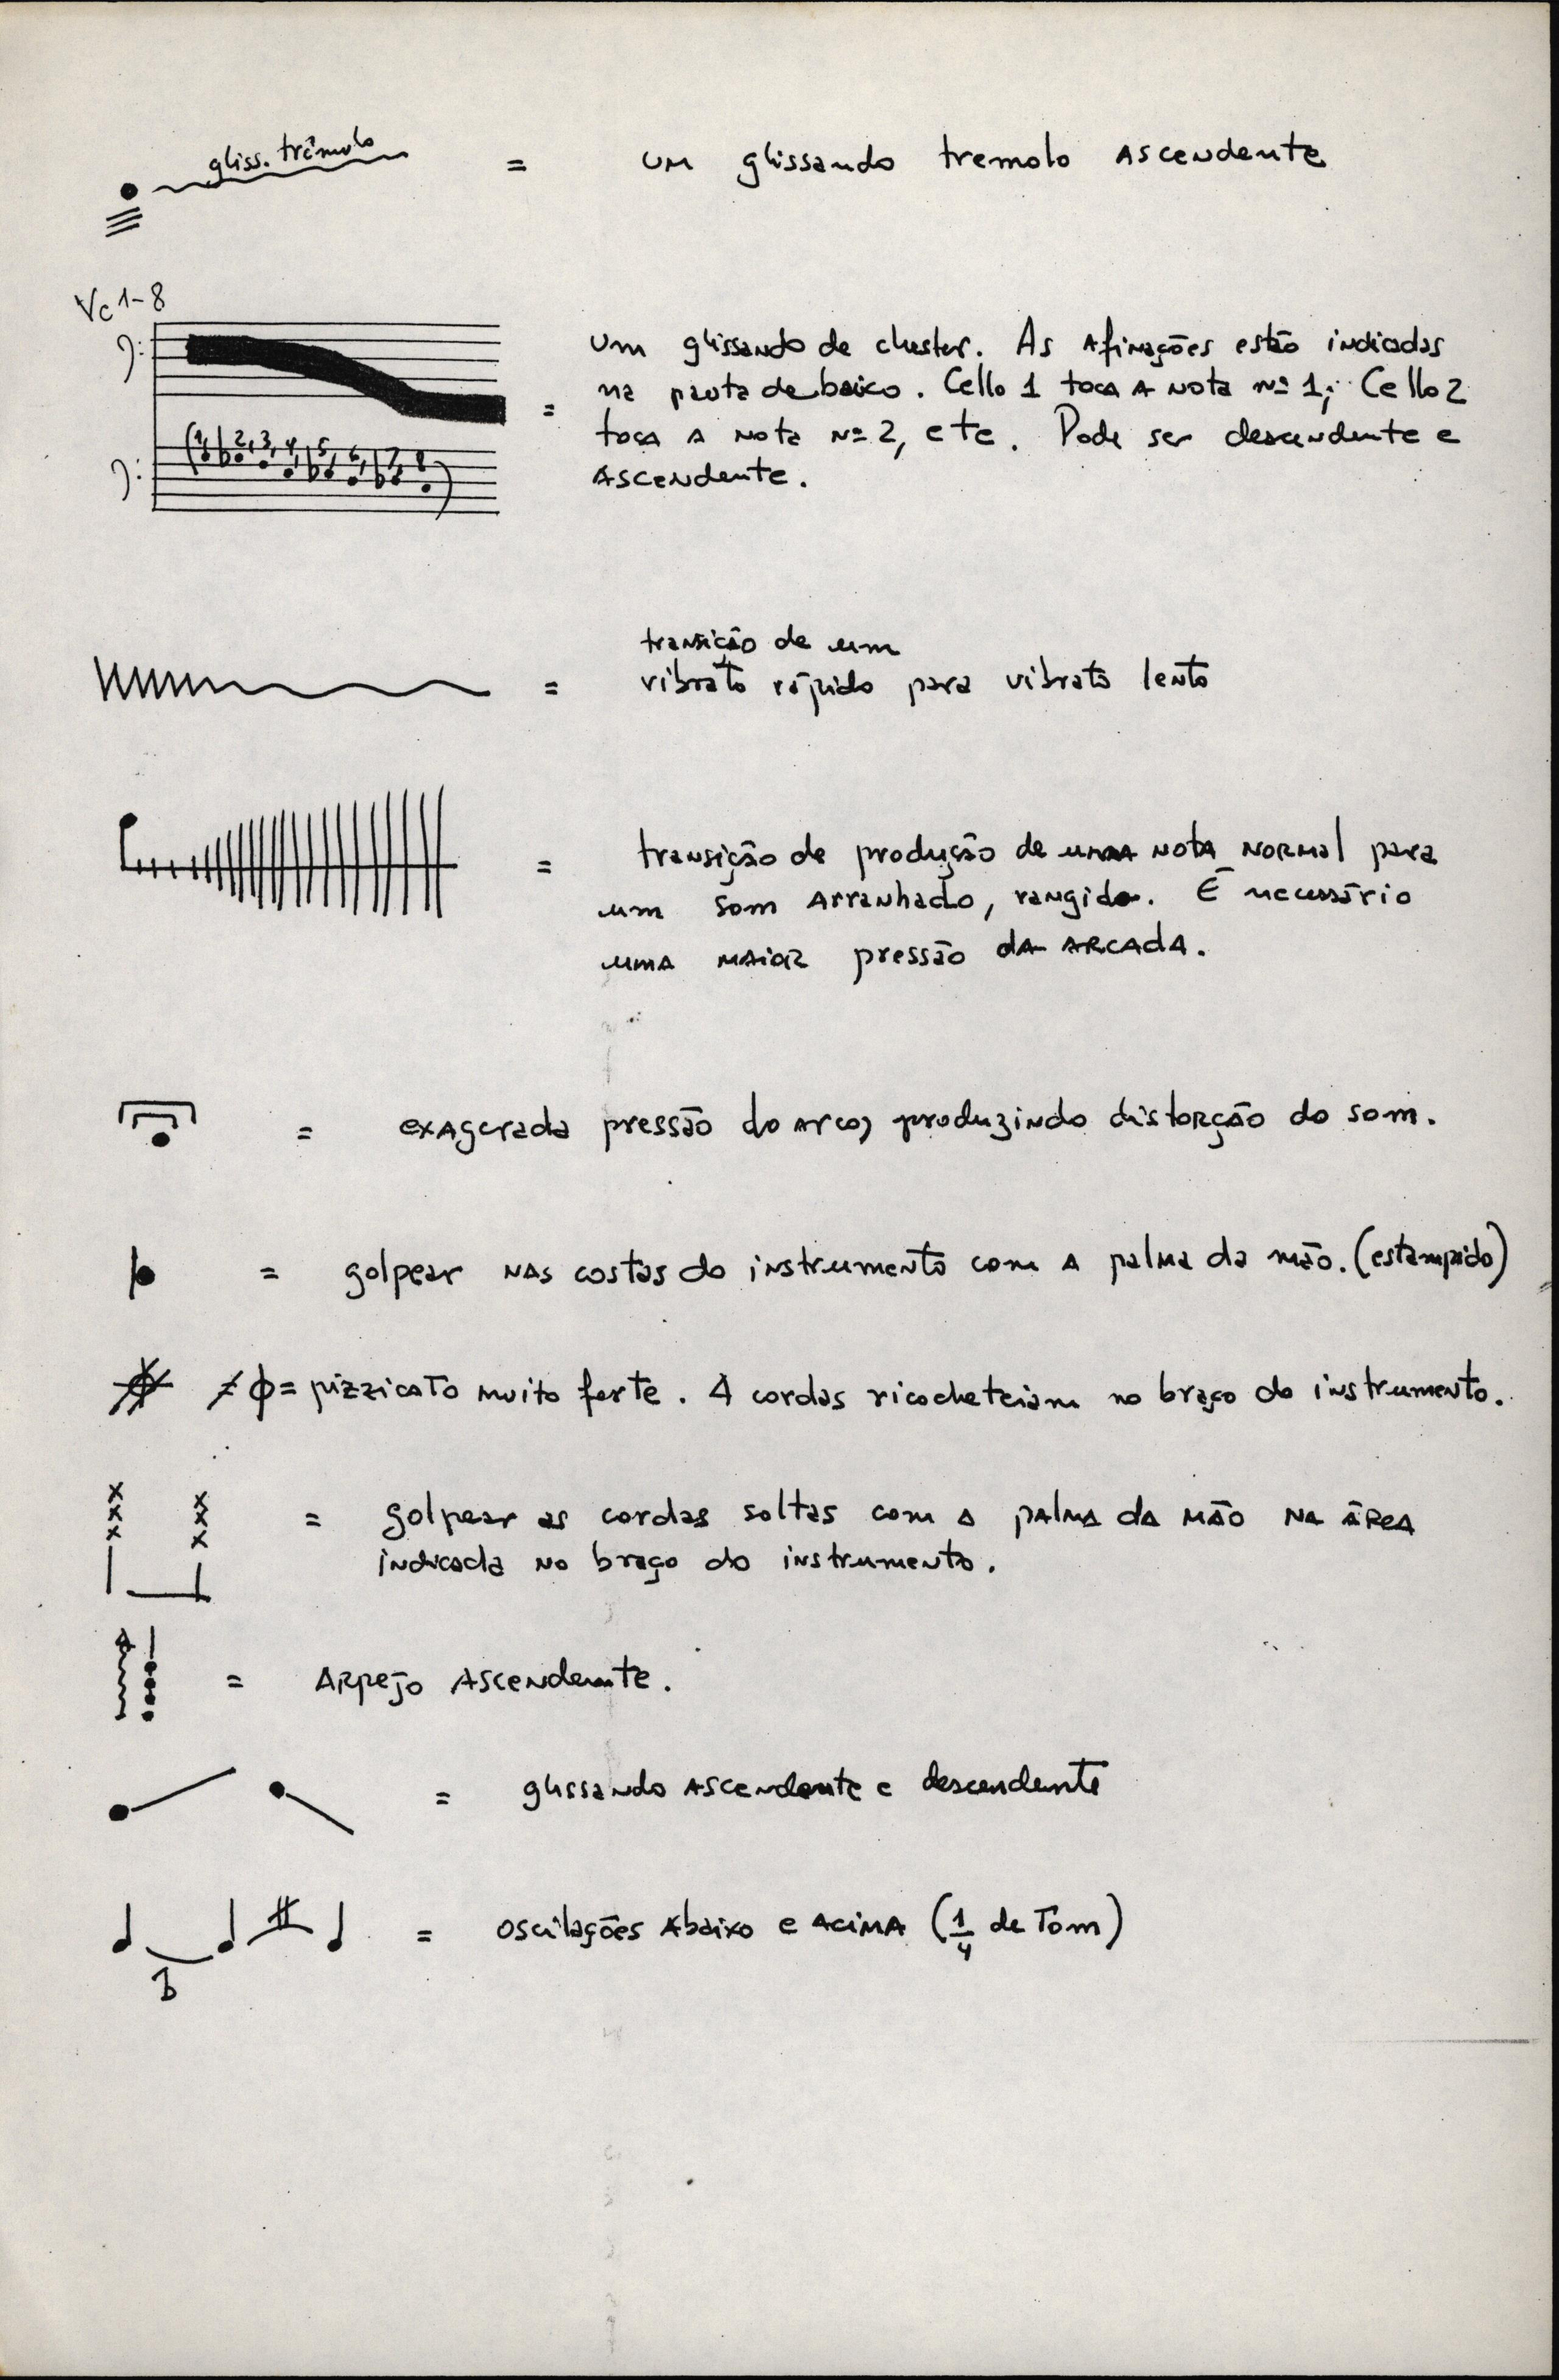 gliss. trêmulo = um glissando tremolo ascendente
Vc 1-8
um glissando de cluster. As afinações estão indicadas
na pauta de baixo. Cello 1 toca a nota nº 1; Cello 2
= toca a nota nº 2, etc. Pode ser descendente e
ascendente.
1, 2, 3, 4, 5, 6, 7, 8
transição de um
= vibrato rápido para vibrato lento
= transição de produção de uma nota normal para
um som arranhado, rangido. É necessário
uma maior pressão da arcada.
= exagerada pressão do arco, produzindo distorção do som.
= golpear nas costas do instrumento com a palma da mão. (estampido)
= pizzicato muito forte. A cordas ricocheteiam no braço do instrumento.
= golpear as cordas soltas com a palma da mão na área
indicada no braço do instrumento.
= Arpejo ascendente.
= glissando ascendente e descendente
= oscilações abaixo e acima (1/4 de Tom)